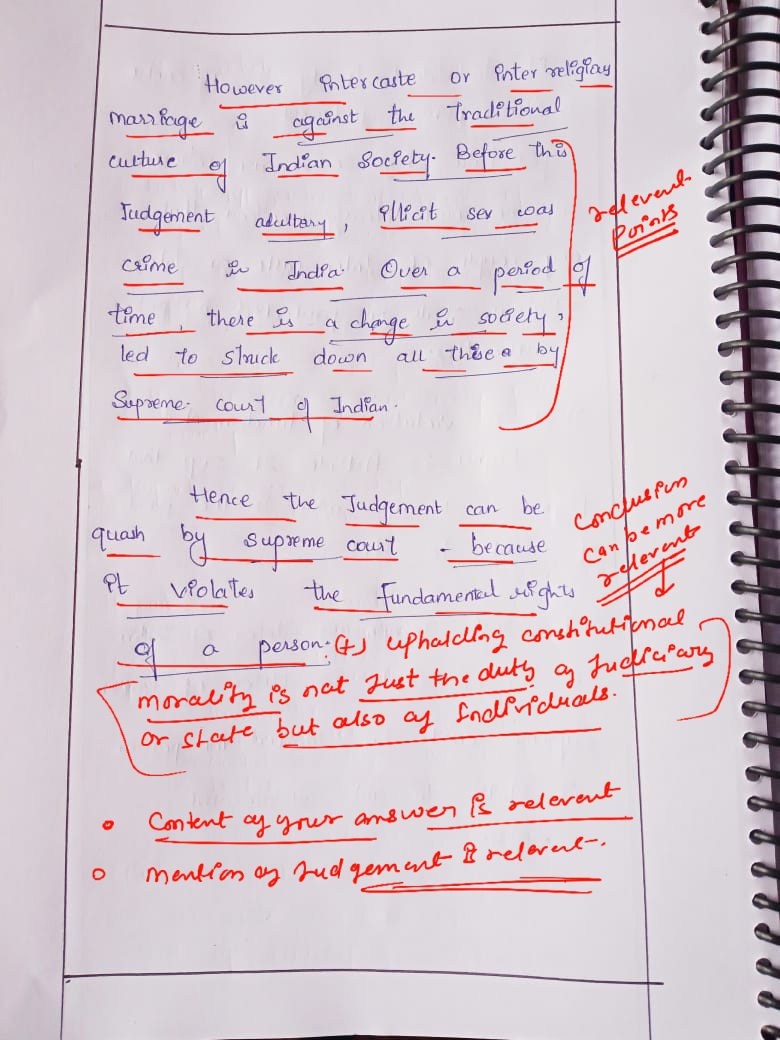 However intercaste or inter religious
marriage is against the Traditional
culture of Indian Society. Before this
Judgement adultary, illicit sex was
crime in India. Over a period of
time, there is a change in society,
led to struck down all these by
Supreme court of Indian.
relevent
points
Hence the Judgement can be
quash by supreme court - because
it violates the Fundamental rights
of a person. (+) upholding constitutional
morality is not Just the duty of Judiciary
or state but also of Individuals.
Conclusion
can be more
relevent
Content of your answer is relevent
mention of Judgement is relevent.